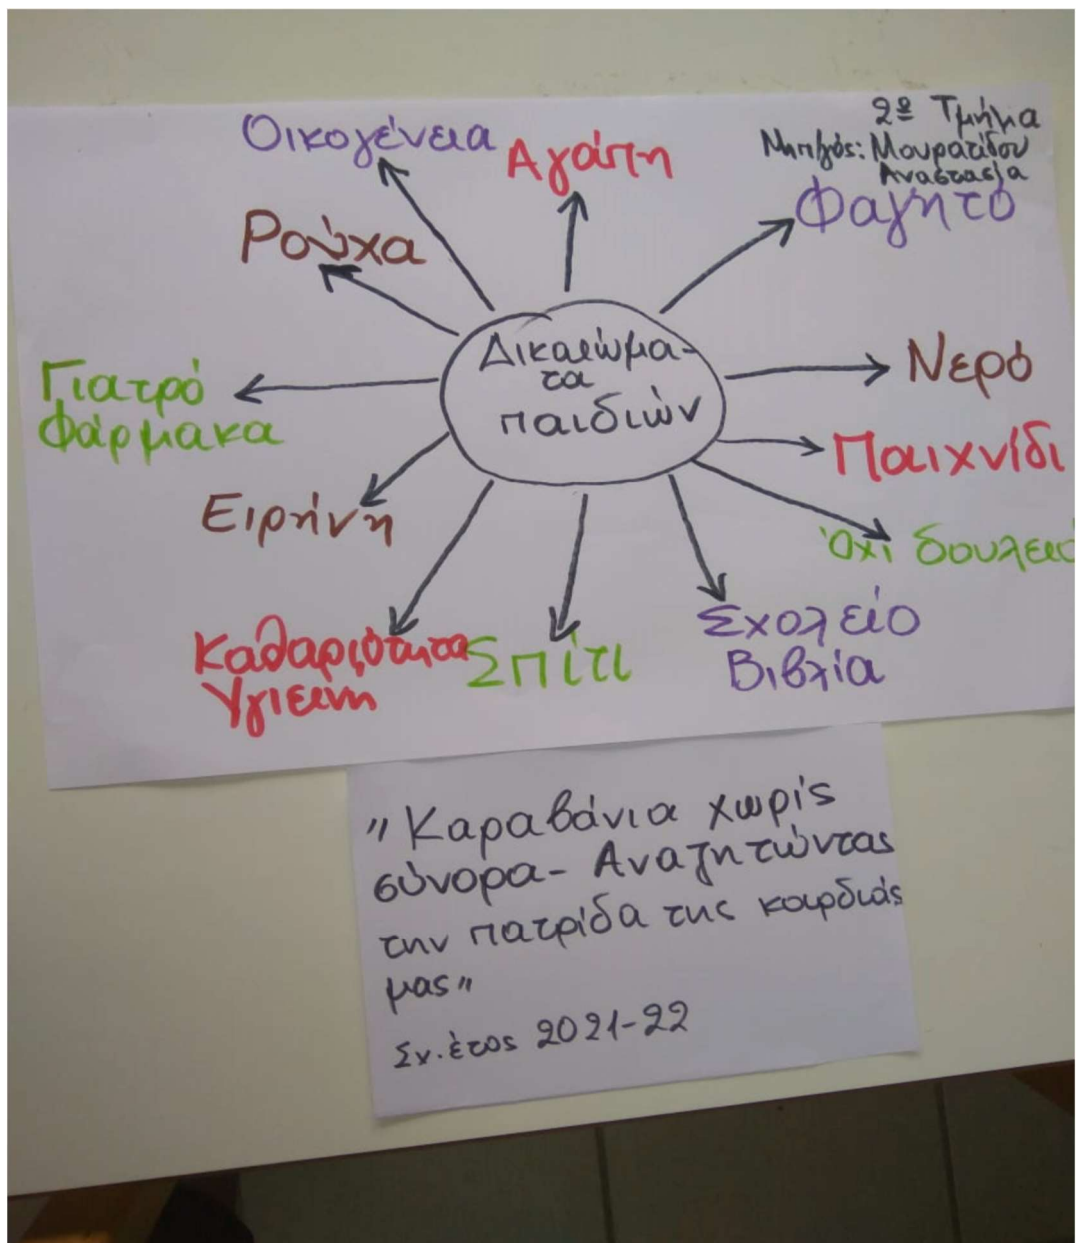 2º Τμήμα
Νηπ/γός: Μουρατίδου
Αναστασία
Οικογένεια
Αγάπη
Φαγητό
Ρούχα
Δικαιώμα-
τα
παιδιών
Νερό
Γιατρό
Φάρμακα
Παιχνίδι
Ειρήνη
Όχι δουλειά
Καθαριότητα
Υγιεινή
Σπίτι
Σχολείο
Βιβλία
"Καραβάνια χωρίς
σύνορα- Αναζητώντας
την πατρίδα της καρδιάς
μας"
Σχ. έτος 2021-22